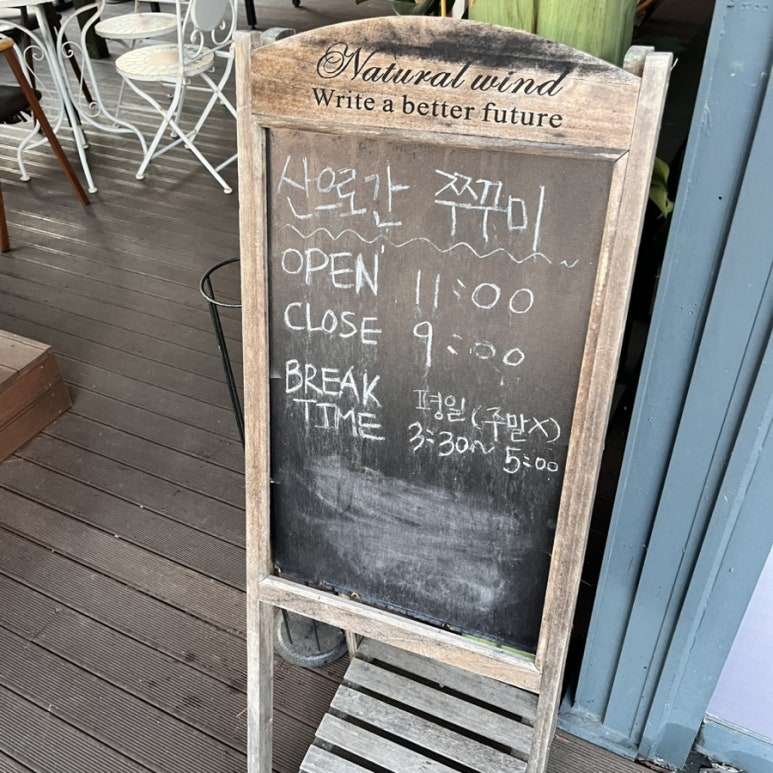 Natural wind
Write a better future
산으로간 쭈꾸미
OPEN 11:00
CLOSE 9:00
BREAK TIME 평일 (주말X)
3:30~ 5:00